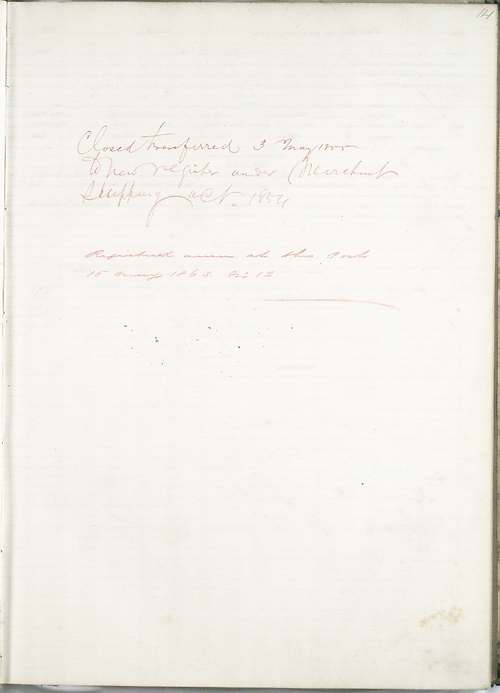 14
Closed transferred 3 May
To new Register under Merchant
Shipping Act. 1854
Registered anew at this Port
15 May 1863. No 12